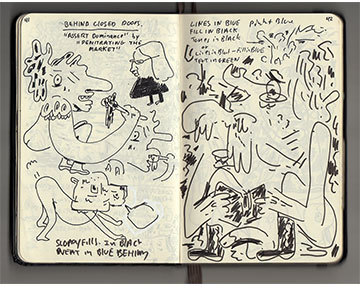 BEHIND CLOSED DOORS,
"ASSERT DOMINANCE" by
"PENETRATING THE
MARKET"
SLOPPY FILLS. IN BLACK
EVENT IN BLUE BEHIND
LINES IN BLUE
FILL IN BLACK
TONES in BLACK
LINES IN BLUE - FILL IN BLUE
TEXT IN GREEN